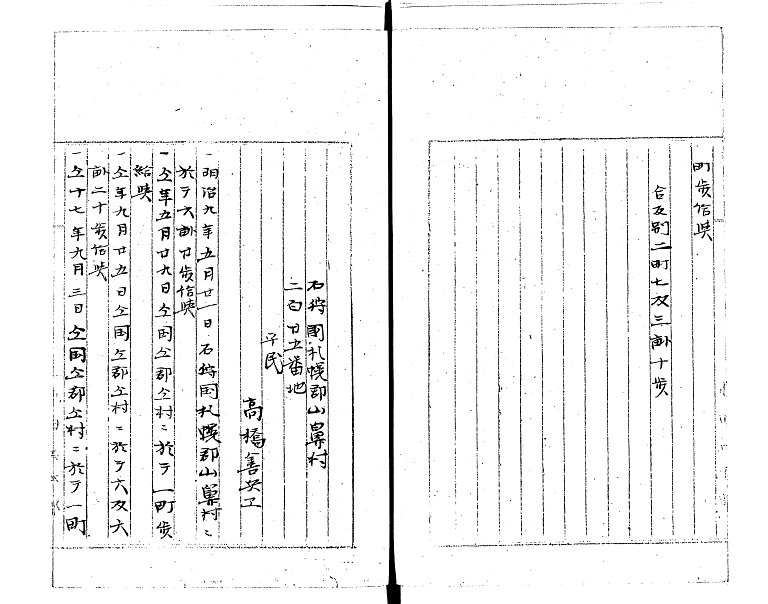 町歩給與
合反別二町七反三畝十歩
石狩國札幌郡山鼻村
二百廿五番地
平民
高橋善
一明治九年五月廿一日石狩国札幌郡山鼻村ニ
於テ六畝廿歩給與
一仝年五月廿九日仝国仝郡仝村ニ於テ一町歩
給與
一仝年九月廿五日仝国仝郡仝村ニ於テ六反六
畝二十歩給與
一仝十七年九月三日仝国仝郡仝村ニ於テ一町